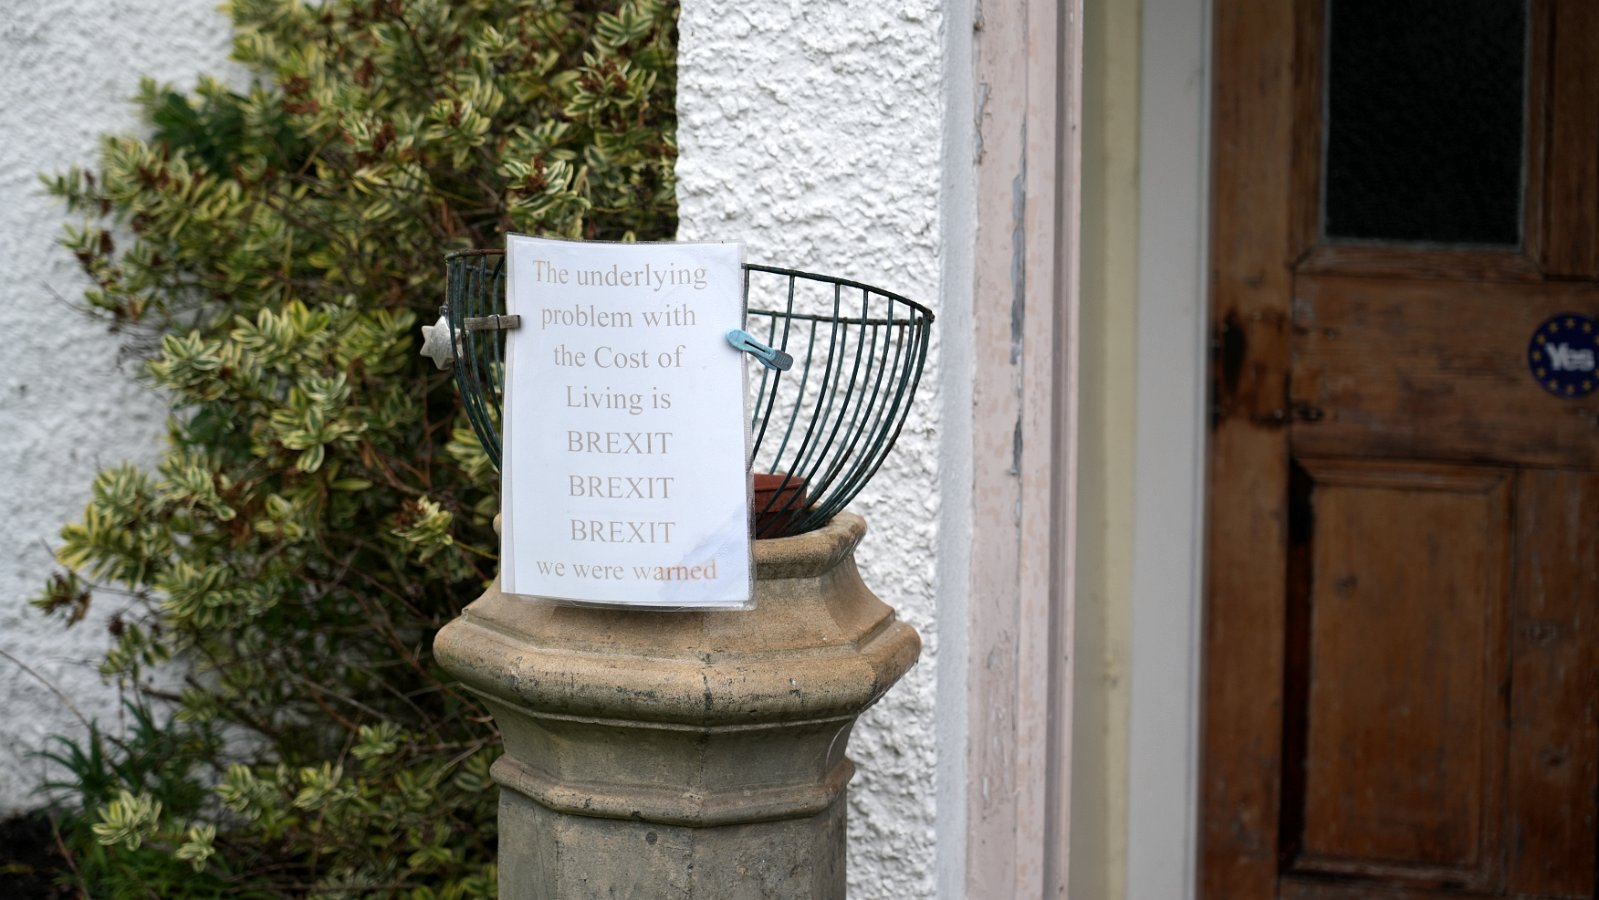 The underlying
problem with
the Cost of
Living is
BREXIT
BREXIT
BREXIT
we were warned
Yes